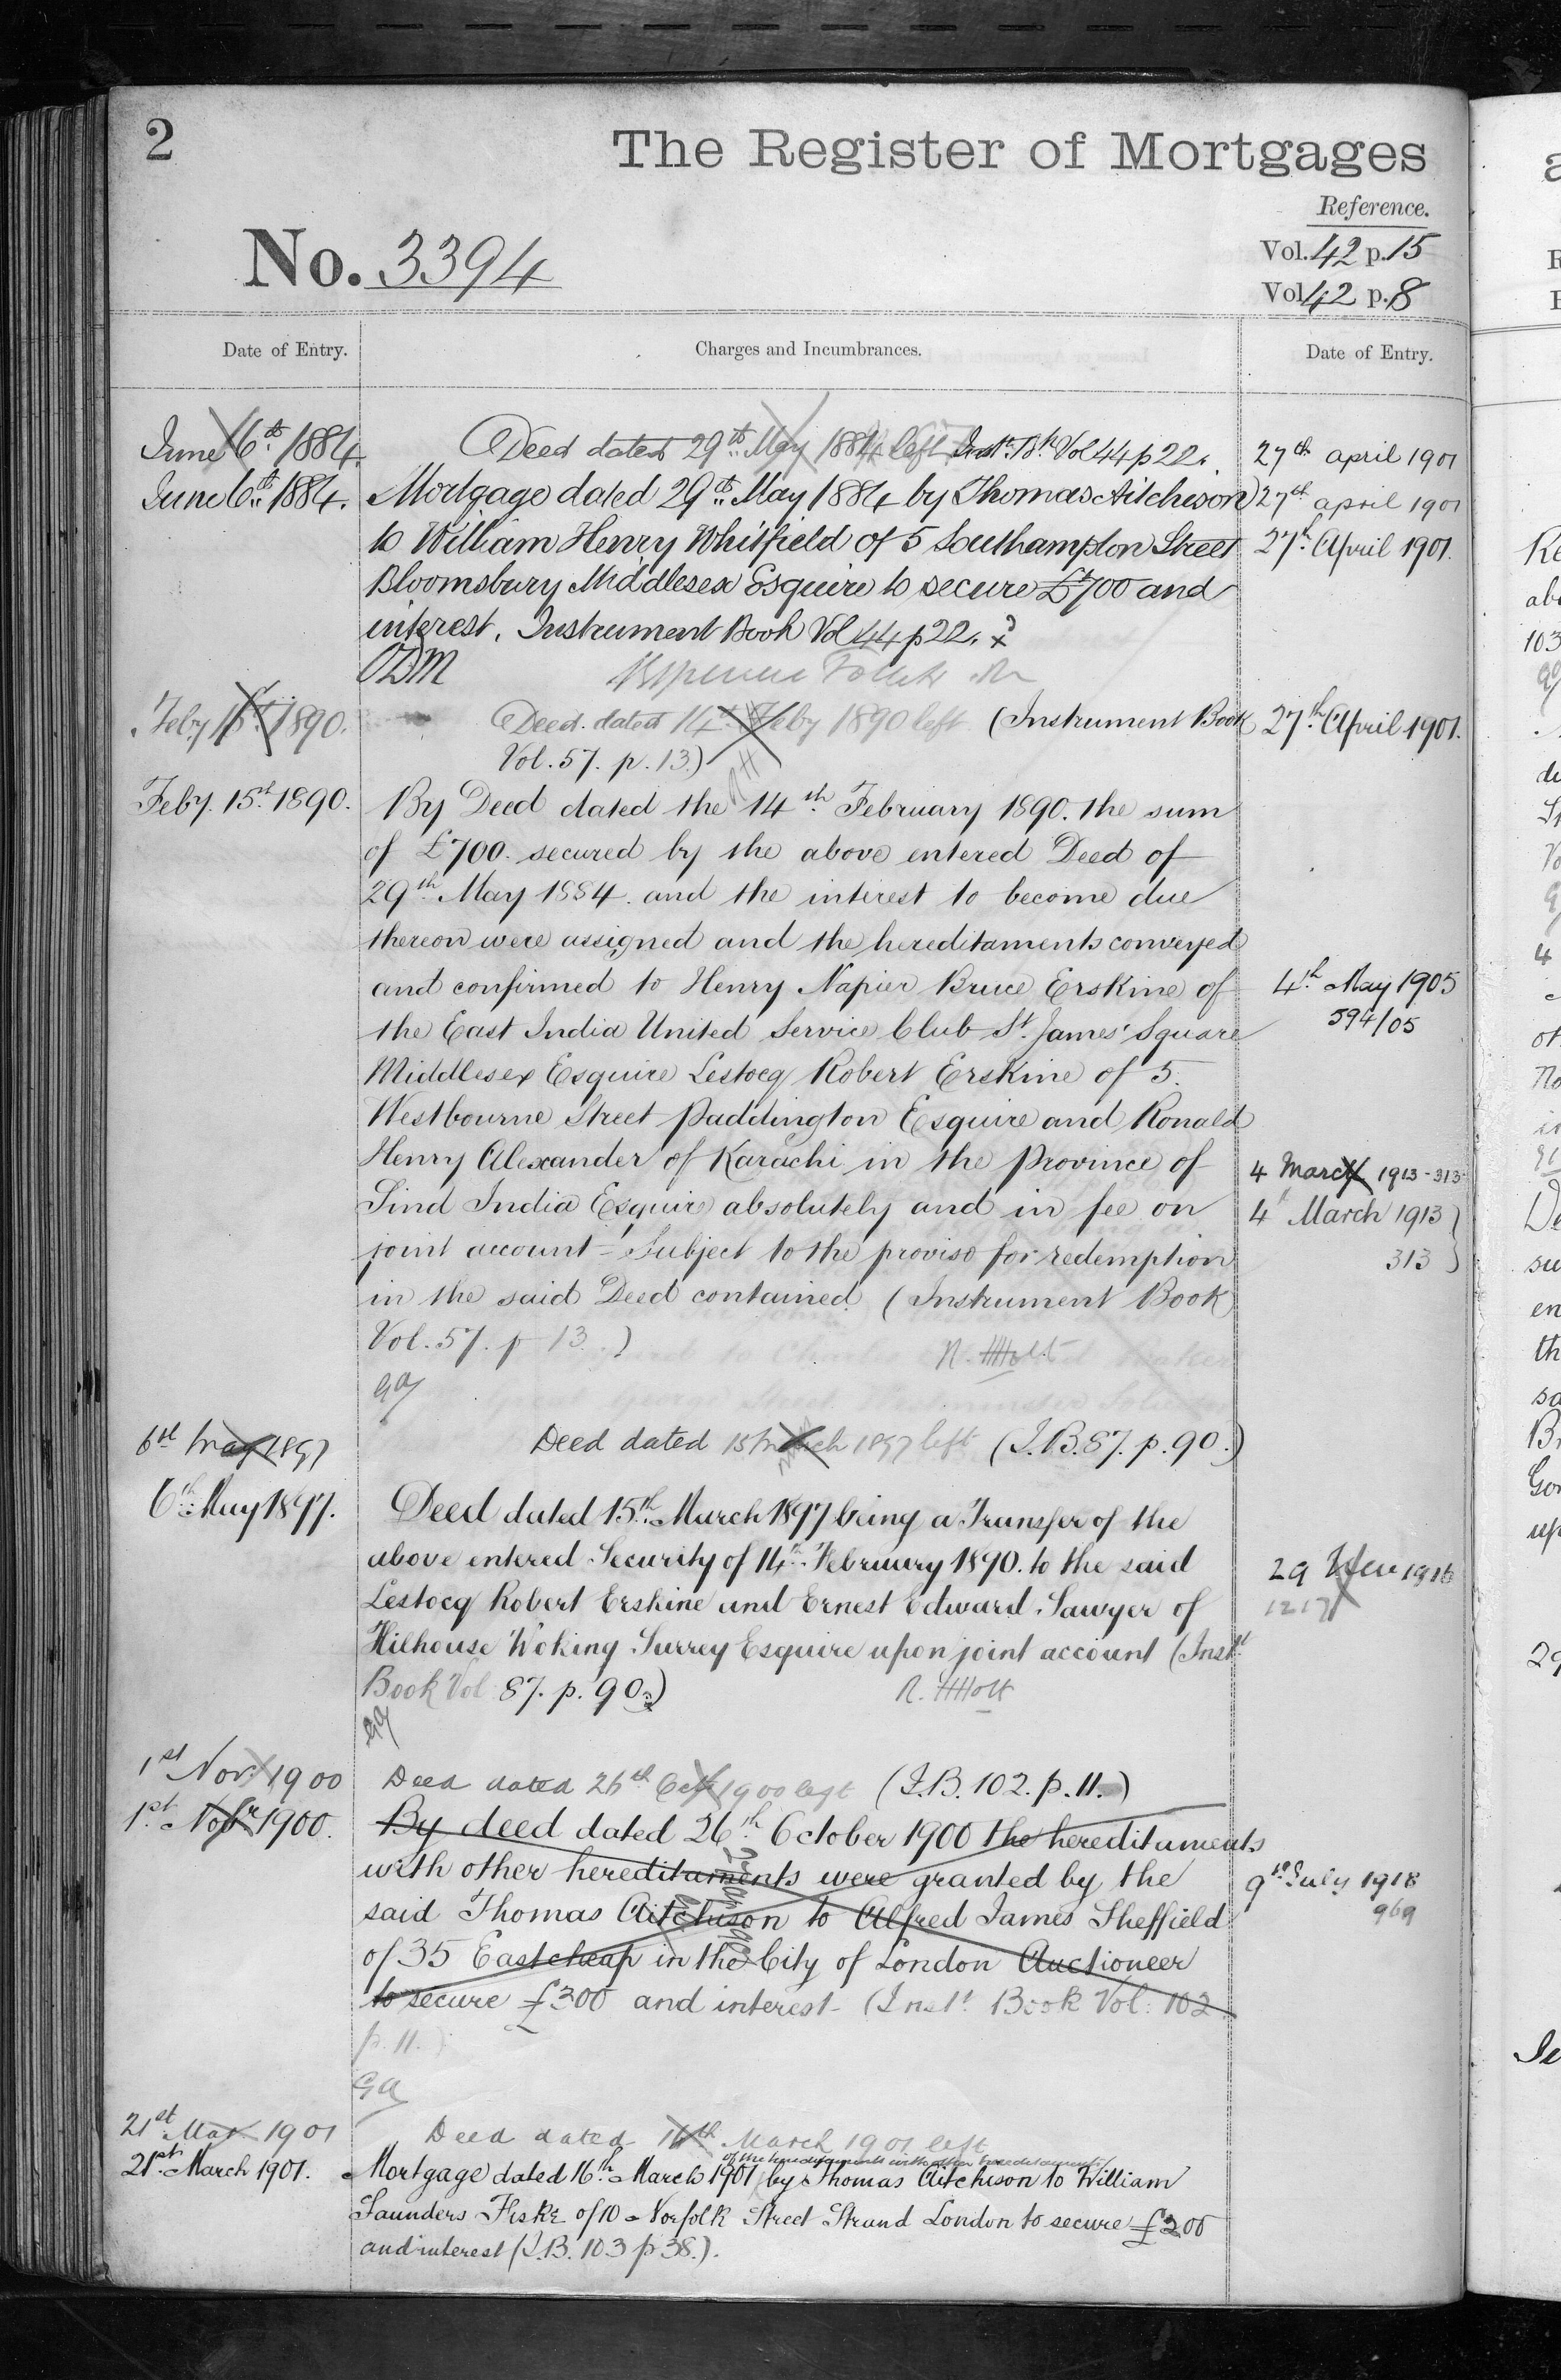 2
The Register of Mortgages
Reference.
No. 3394
Vol. 42 p. 15
Vol. 42 p. 8
Date of Entry.
Charges and Incumbrances.
Date of Entry.
June 6th 1884.
Deed dated 29th May 1884 left Instt. Bk. Vol 44 p 22.
27th april 1901
June 6th 1884.
Mortgage dated 29th May 1884 by Thomas Aitchison
27th april 1901
to William Henry Whitfield of 5 Southampton Street
27th April 1901.
Bloomsbury Middlesex Esquire to secure £700 and
interest. Instrument Book Vol 44 p 22.
Feby 15th 1890.
Deed dated 14th Feby 1890 left (Instrument Book
27th April 1901.
Vol. 57. p. 13.)
Feby. 15th 1890.
By Deed dated the 14th February 1890. the sum
of £700. secured by the above entered Deed of
29th May 1884. and the interest to become due
thereon were assigned and the hereditaments conveyed
and confirmed to Henry Napier Bruce Erskine of
4th May 1905
the East India United Service Club St. James' Square
594/05
Middlesex Esquire Lestocq Robert Erskine of 5.
Westbourne Street Paddington Esquire and Ronald
Henry Alexander of Karachi in the Province of
4 March 1913 - 313
Sind India Esquire absolutely and in fee on
4th March 1913
joint account - Subject to the proviso for redemption
313
in the said Deed contained. (Instrument Book
Vol. 57. p 13.)
R. H Holt
GA
6th May 1897
Deed dated 15 March 1897 left (I.B. 87. p. 90.)
6th May 1897.
Deed dated 15th March 1897 being a Transfer of the
above entered Security of 14th February 1890. to the said
29 1916
Lestocq Robert Erskine and Ernest Edward Sawyer of
1217
Hilhouse Woking Surrey Esquire upon joint account (Instt
Book Vol 87. p. 90.)
R. H Holt
GA
1st Nov. 1900
Deed dated 26th Oct 1900 left (I.B. 102. p. 11.)
1st Novr 1900.
By deed dated 26th October 1900 the hereditaments
with other hereditaments were granted by the
9th July 1918
said Thomas Aitchison to Alfred James Sheffield
969
of 35 Eastcheap in the City of London Auctioneer
to secure £300 and interest - (Instt Book Vol: 102
p. 11.)
GA
21st Mar 1901
Deed dated 16th March 1901 left
of the hereditaments with other hereditaments
21st March 1901.
Mortgage dated 16th March 1901 by Thomas Aitchison to William
Saunders Fiske of 10 Norfolk Street Strand London to secure £200
and interest (I.B. 103 p 38.).